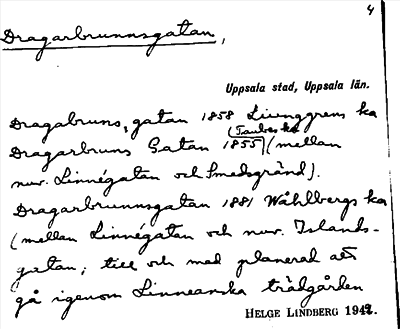 4
Dragarbrunnsgatan,
Uppsala stad, Uppsala län.
Dragabruns, gatan 1858 Ljunggrens ka
(Taubes ka
Dragarbruns Gatan 1855) (mellan
nuv. Linnégatan och Smedsgränd).
Dragarbrunnsgatan 1881 Wåhlbergs ka
(mellan Linnégatan och nuv. Islands-
gatan, till och med planerad att
gå igenom Linneanska trädgården
HELGE LINDBERG 1942.